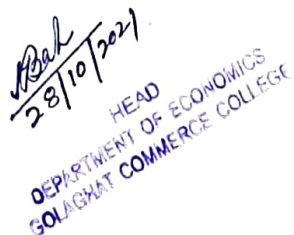 28/10/2021
HEAD
DEPARTMENT OF ECONOMICS
GOLAGHAT COMMERCE COLLEGE